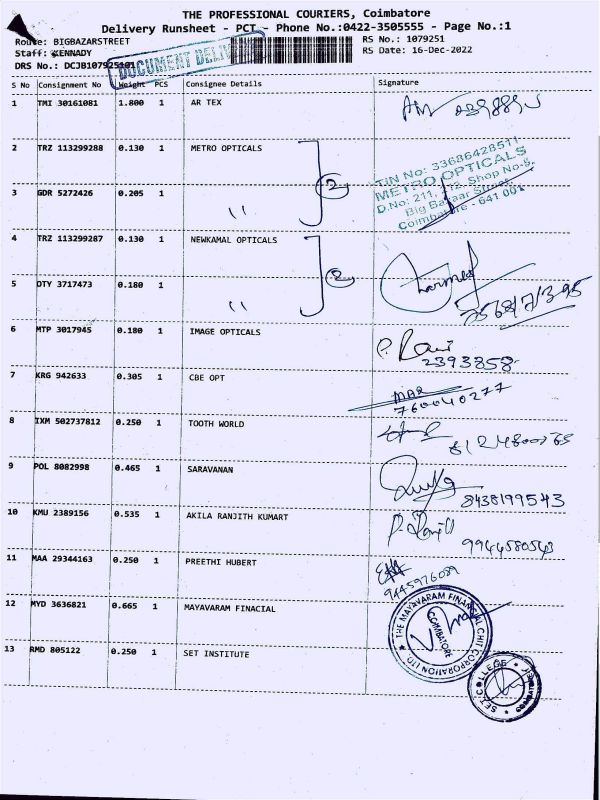 THE PROFESSIONAL COURIERS, Coimbatore
Delivery Runsheet - PCT - Phone No.:0422-3505555 - Page No.:1
Route: BIGBAZARSTREET RS No.: 1079251
Staff: KENNADY RS Date: 16-Dec-2022
DRS No.: DCJB107925101
DOCUMENT DELIV
S No Consignment No Weight PCS Consignee Details Signature
1 TMI 30161081 1.800 1 AR TEX
2 TRZ 113299288 0.130 1 METRO OPTICALS
2
TIN No: 33686428511
METRO OPTICALS
D.No: 211, 212, Shop No-5,
Big Bazaar Street,
Coimbatore - 641 001
3 GDR 5272426 0.205 1 ''
4 TRZ 113299287 0.130 1 NEWKAMAL OPTICALS
2
5 DTY 3717473 0.180 1 ''
6 MTP 3017945 0.180 1 IMAGE OPTICALS
P. Ravi
2393858
7 KRG 942633 0.305 1 CBE OPT
760040277
8 IXM 502737812 0.250 1 TOOTH WORLD
9 POL 8082998 0.465 1 SARAVANAN
8438199543
10 KMU 2389156 0.535 1 AKILA RANJITH KUMART
9944580543
11 MAA 29344163 0.250 1 PREETHI HUBERT
9445976089
12 MYD 3636821 0.665 1 MAYAVARAM FINACIAL
THE MAYAVARAM FINANCIAL CHIT CORPORATION LTD.
COIMBATORE
13 RMD 805122 0.250 1 SET INSTITUTE
SET COLLEGE